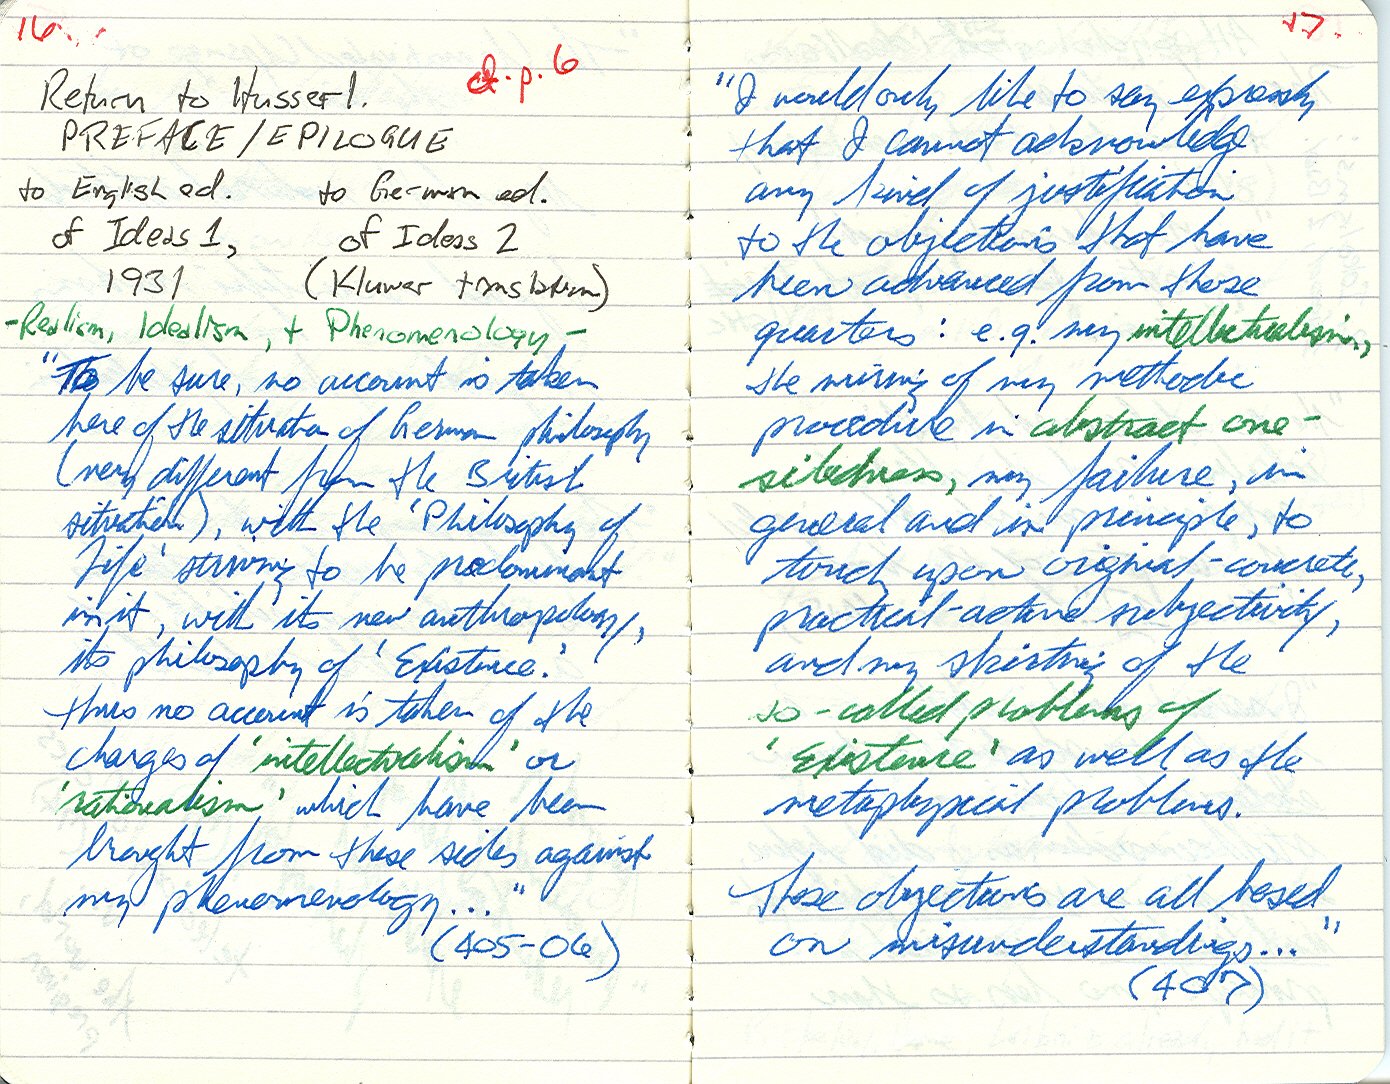 16.
cf. p. 6
Return to Husserl.
PREFACE / EPILOGUE
to English ed. to German ed.
of Ideas 1, of Ideas 2
1931 (Kluwer translation)
- Realism, Idealism, + Phenomenology -
"To be sure, no account is taken
here of the situation of German philosophy
(very different from the British
situation), with the 'Philosophy of
Life' striving to be predominant
in it, with its new anthropology,
its philosophy of 'Existence.'
Thus no account is taken of the
charges of 'intellectualism' or
'rationalism' which have been
brought from these sides against
my phenomenology..."
(405-06)
17.
"I would only like to say expressly
that I cannot acknowledge
any kind of justification
to the objections that have
been advanced from these
quarters: e.g. my intellectualism,
the miring of my methodic
procedure in abstract one-
sidedness, my failure, in
general and in principle, to
touch upon original-concrete,
practical-active subjectivity,
and my skirting of the
so-called problems of
'Existence' as well as the
metaphysical problems.
Those objections are all based
on misunderstandings..."
(407)